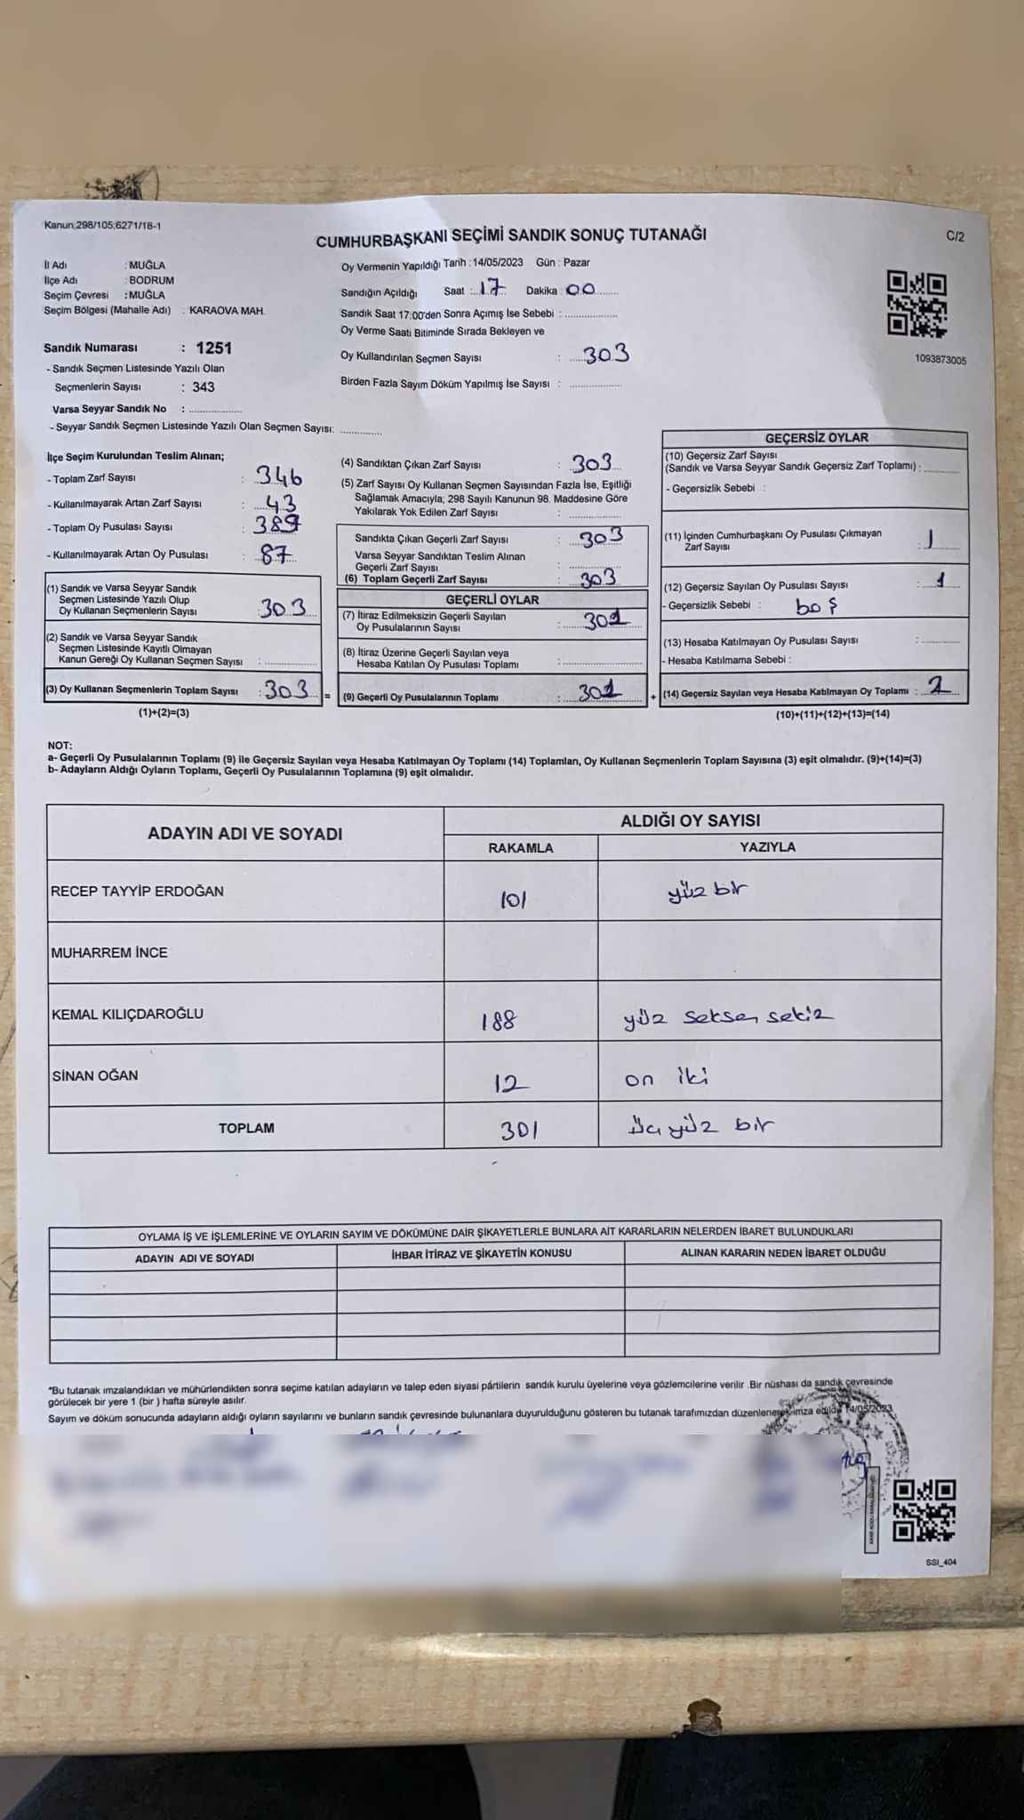 Kanun:298/105;6271/18-1
CUMHURBAŞKANI SEÇİMİ SANDIK SONUÇ TUTANAĞI
C/2
İl Adı : MUĞLA
İlçe Adı : BODRUM
Seçim Çevresi : MUĞLA
Seçim Bölgesi (Mahalle Adı) : KARAOVA MAH.
Sandık Numarası : 1251
- Sandık Seçmen Listesinde Yazılı Olan
Seçmenlerin Sayısı : 343
Varsa Seyyar Sandık No : ....................
- Seyyar Sandık Seçmen Listesinde Yazılı Olan Seçmen Sayısı: ..............
Oy Vermenin Yapıldığı Tarih : 14/05/2023 Gün : Pazar
Sandığın Açıldığı Saat : 17 Dakika 00
Sandık Saat 17:00'den Sonra Açımış İse Sebebi : ....................
Oy Verme Saati Bitiminde Sırada Bekleyen ve
Oy Kullandırılan Seçmen Sayısı : 303
Birden Fazla Sayım Döküm Yapılmış İse Sayısı : ....................
1093873005
İlçe Seçim Kurulundan Teslim Alınan;
- Toplam Zarf Sayısı : 346
- Kullanılmayarak Artan Zarf Sayısı : 43
- Toplam Oy Pusulası Sayısı : 389
- Kullanılmayarak Artan Oy Pusulası : 87
(1) Sandık ve Varsa Seyyar Sandık
Seçmen Listesinde Yazılı Olup
Oy Kullanan Seçmenlerin Sayısı : 303
(2) Sandık ve Varsa Seyyar Sandık
Seçmen Listesinde Kayıtlı Olmayan
Kanun Gereği Oy Kullanan Seçmen Sayısı : ....................
(3) Oy Kullanan Seçmenlerin Toplam Sayısı : 303 =
(1)+(2)=(3)
(4) Sandıktan Çıkan Zarf Sayısı : 303
(5) Zarf Sayısı Oy Kullanan Seçmen Sayısından Fazla İse, Eşitliği
Sağlamak Amacıyla, 298 Sayılı Kanunun 98. Maddesine Göre
Yakılarak Yok Edilen Zarf Sayısı : ....................
Sandıkta Çıkan Geçerli Zarf Sayısı : 303
Varsa Seyyar Sandıktan Teslim Alınan
Geçerli Zarf Sayısı : ....................
(6) Toplam Geçerli Zarf Sayısı : 303
GEÇERLİ OYLAR
(7) İtiraz Edilmeksizin Geçerli Sayılan
Oy Pusulalarının Sayısı : 301
(8) İtiraz Üzerine Geçerli Sayılan veya
Hesaba Katılan Oy Pusulası Toplamı : ....................
(9) Geçerli Oy Pusulalarının Toplamı : 301 +
GEÇERSİZ OYLAR
(10) Geçersiz Zarf Sayısı
(Sandık ve Varsa Seyyar Sandık Geçersiz Zarf Toplamı) : ..........
- Geçersizlik Sebebi :
(11) İçinden Cumhurbaşkanı Oy Pusulası Çıkmayan
Zarf Sayısı : 1
(12) Geçersiz Sayılan Oy Pusulası Sayısı : 1
- Geçersizlik Sebebi : boş
(13) Hesaba Katılmayan Oy Pusulası Sayısı : ..........
- Hesaba Katılmama Sebebi :
(14) Geçersiz Sayılan veya Hesaba Katılmayan Oy Toplamı : 2
(10)+(11)+(12)+(13)=(14)
NOT:
a- Geçerli Oy Pusulalarının Toplamı (9) ile Geçersiz Sayılan veya Hesaba Katılmayan Oy Toplamı (14) Toplamları, Oy Kullanan Seçmenlerin Toplam Sayısına (3) eşit olmalıdır. (9)+(14)=(3)
b- Adayların Aldığı Oyların Toplamı, Geçerli Oy Pusulalarının Toplamına (9) eşit olmalıdır.
ADAYIN ADI VE SOYADI
ALDIĞI OY SAYISI
RAKAMLA YAZIYLA
RECEP TAYYİP ERDOĞAN 101 yüz bir
MUHARREM İNCE
KEMAL KILIÇDAROĞLU 188 yüz seksen sekiz
SİNAN OĞAN 12 on iki
TOPLAM 301 üç yüz bir
OYLAMA İŞ VE İŞLEMLERİNE VE OYLARIN SAYIM VE DÖKÜMÜNE DAİR ŞİKAYETLERLE BUNLARA AİT KARARLARIN NELERDEN İBARET BULUNDUKLARI
ADAYIN ADI VE SOYADI İHBAR İTİRAZ VE ŞİKAYETİN KONUSU ALINAN KARARIN NEDEN İBARET OLDUĞU
*Bu tutanak imzalandıktan ve mühürlendikten sonra seçime katılan adayların ve talep eden siyasi partilerin sandık kurulu üyelerine veya gözlemcilerine verilir. Bir nüshası da sandık çevresinde
görülecek bir yere 1 (bir) hafta süreyle asılır.
Sayım ve döküm sonucunda adayların aldığı oyların sayılarını ve bunların sandık çevresinde bulunanlara duyurulduğunu gösteren bu tutanak tarafımızdan düzenlenerek imza edildi. 14/05/2023
SSI_404